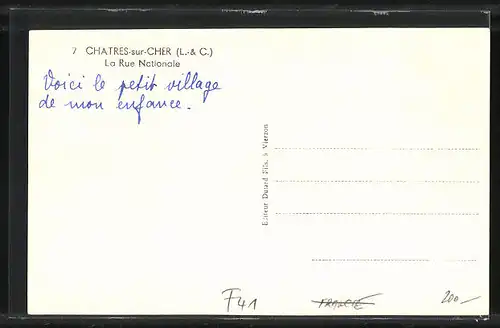 7 CHATRES-sur-CHER (L.-& C.)
La Rue Nationale
Voici le petit village
de mon enfance.
Editeur Durand Fils, à Vierzon
F41
FRANCIE
200.-